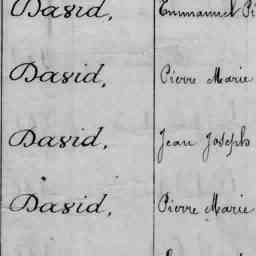 David, Emmanuel Pi
David, Pierre Marie
David, Jean Joseph
David, Pierre Marie